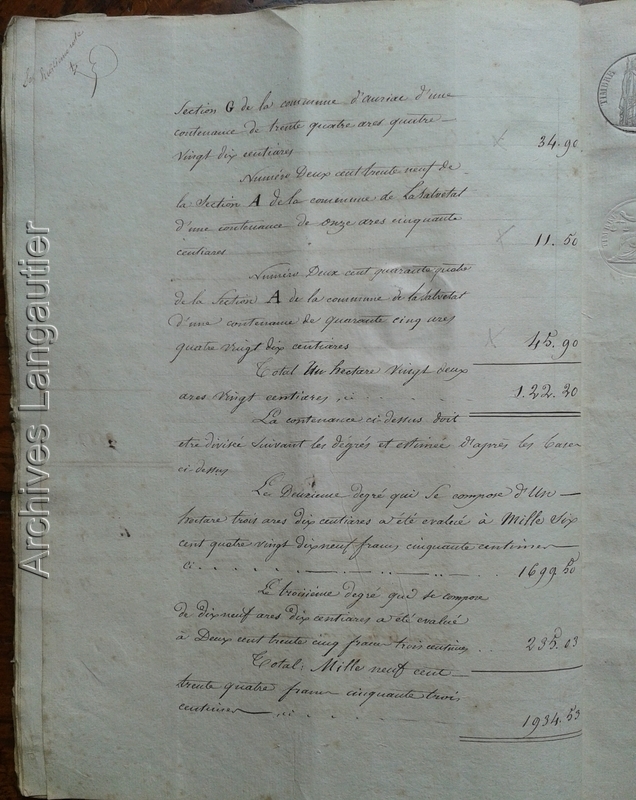 Section G de la commune d'auriac d'une
contenance de trente quatre ares quatre
vingt dix centiares 34.90
Numéro Deux cent trente neuf de
la Section A de la commune de Lasalvetat
d'une contenance de onze ares cinquante
centiares 11.50
Numéro Deux cent quarante quatre
de la Section A de la commune de lasalvetat
d'une contenance de quarante cinq ares
quatre vingt dix centiares 45.90
Total Un hectare vingt deux
ares vingt centiares, ci 1.22.20
La contenance ci-dessus doit
etre divisée suivant les degrés et estimée d'après les bases
ci-dessus
Le Deuxieme degré qui se compose d'Un
hectare trois ares dix centiares a été evalué à Mille Six
cent quatre vingt dixneuf francs cinquante centimes
ci 1699.50
Le troisième degré qui se compose
de dixneuf ares dix centiares a été evalué
à Deux cent trente cinq francs trois centimes 235.03
Total: Mille neuf cent
trente quatre francs cinquante trois
centimes, ci 1934.53
TIMBRE
Archives Langautier